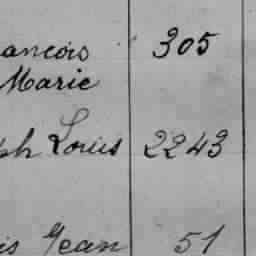 ancois 305
Marie
ph Louis 2243
is Jean 51